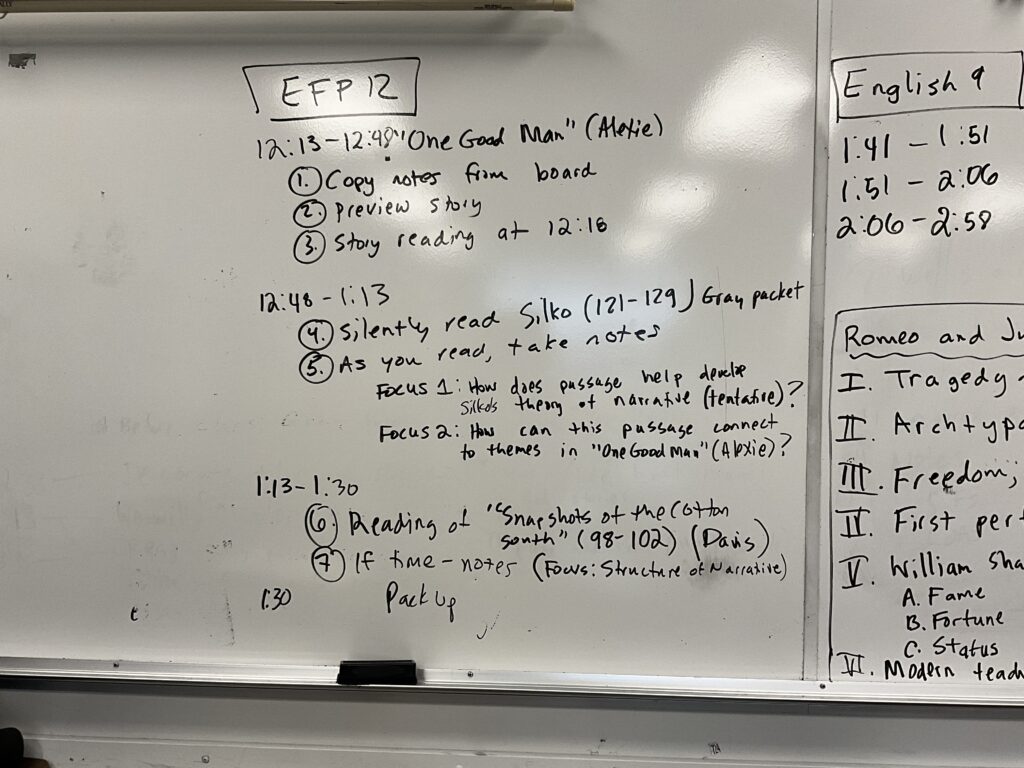 EFP 12
12:13-12:48 "One Good Man" (Alexie)
1. Copy notes from board
2. Preview story
3. Story reading at 12:18
12:48 - 1:13
4. Silently read Silko (121-129) Gray packet
5. As you read, take notes
Focus 1: How does passage help develop
Silko's theory of narrative (tentative)?
Focus 2: How can this passage connect
to themes in "One Good Man" (Alexie)?
1:13 - 1:30
6. Reading of "Snapshots of the Cotton
South" (98-102) (Davis)
7. If time - notes (Focus: Structure of Narrative)
1:30 Pack up
English 9
1:41 - 1:51
1:51 - 2:06
2:06 - 2:58
Romeo and Ju
I. Tragedy
II. Archtyp
III. Freedom;
II. First per
V. William Sha
A. Fame
B. Fortune
C. Status
VI. Modern teach